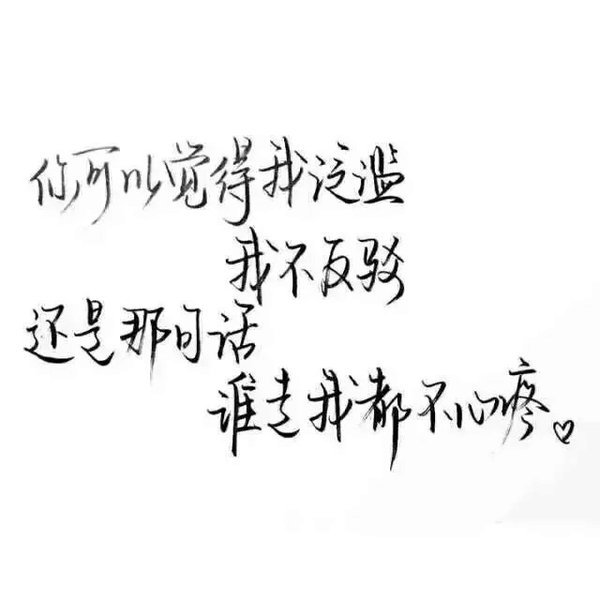 你可以觉得我泛滥
我不反驳
还是那句话
谁走我都不心疼。♡